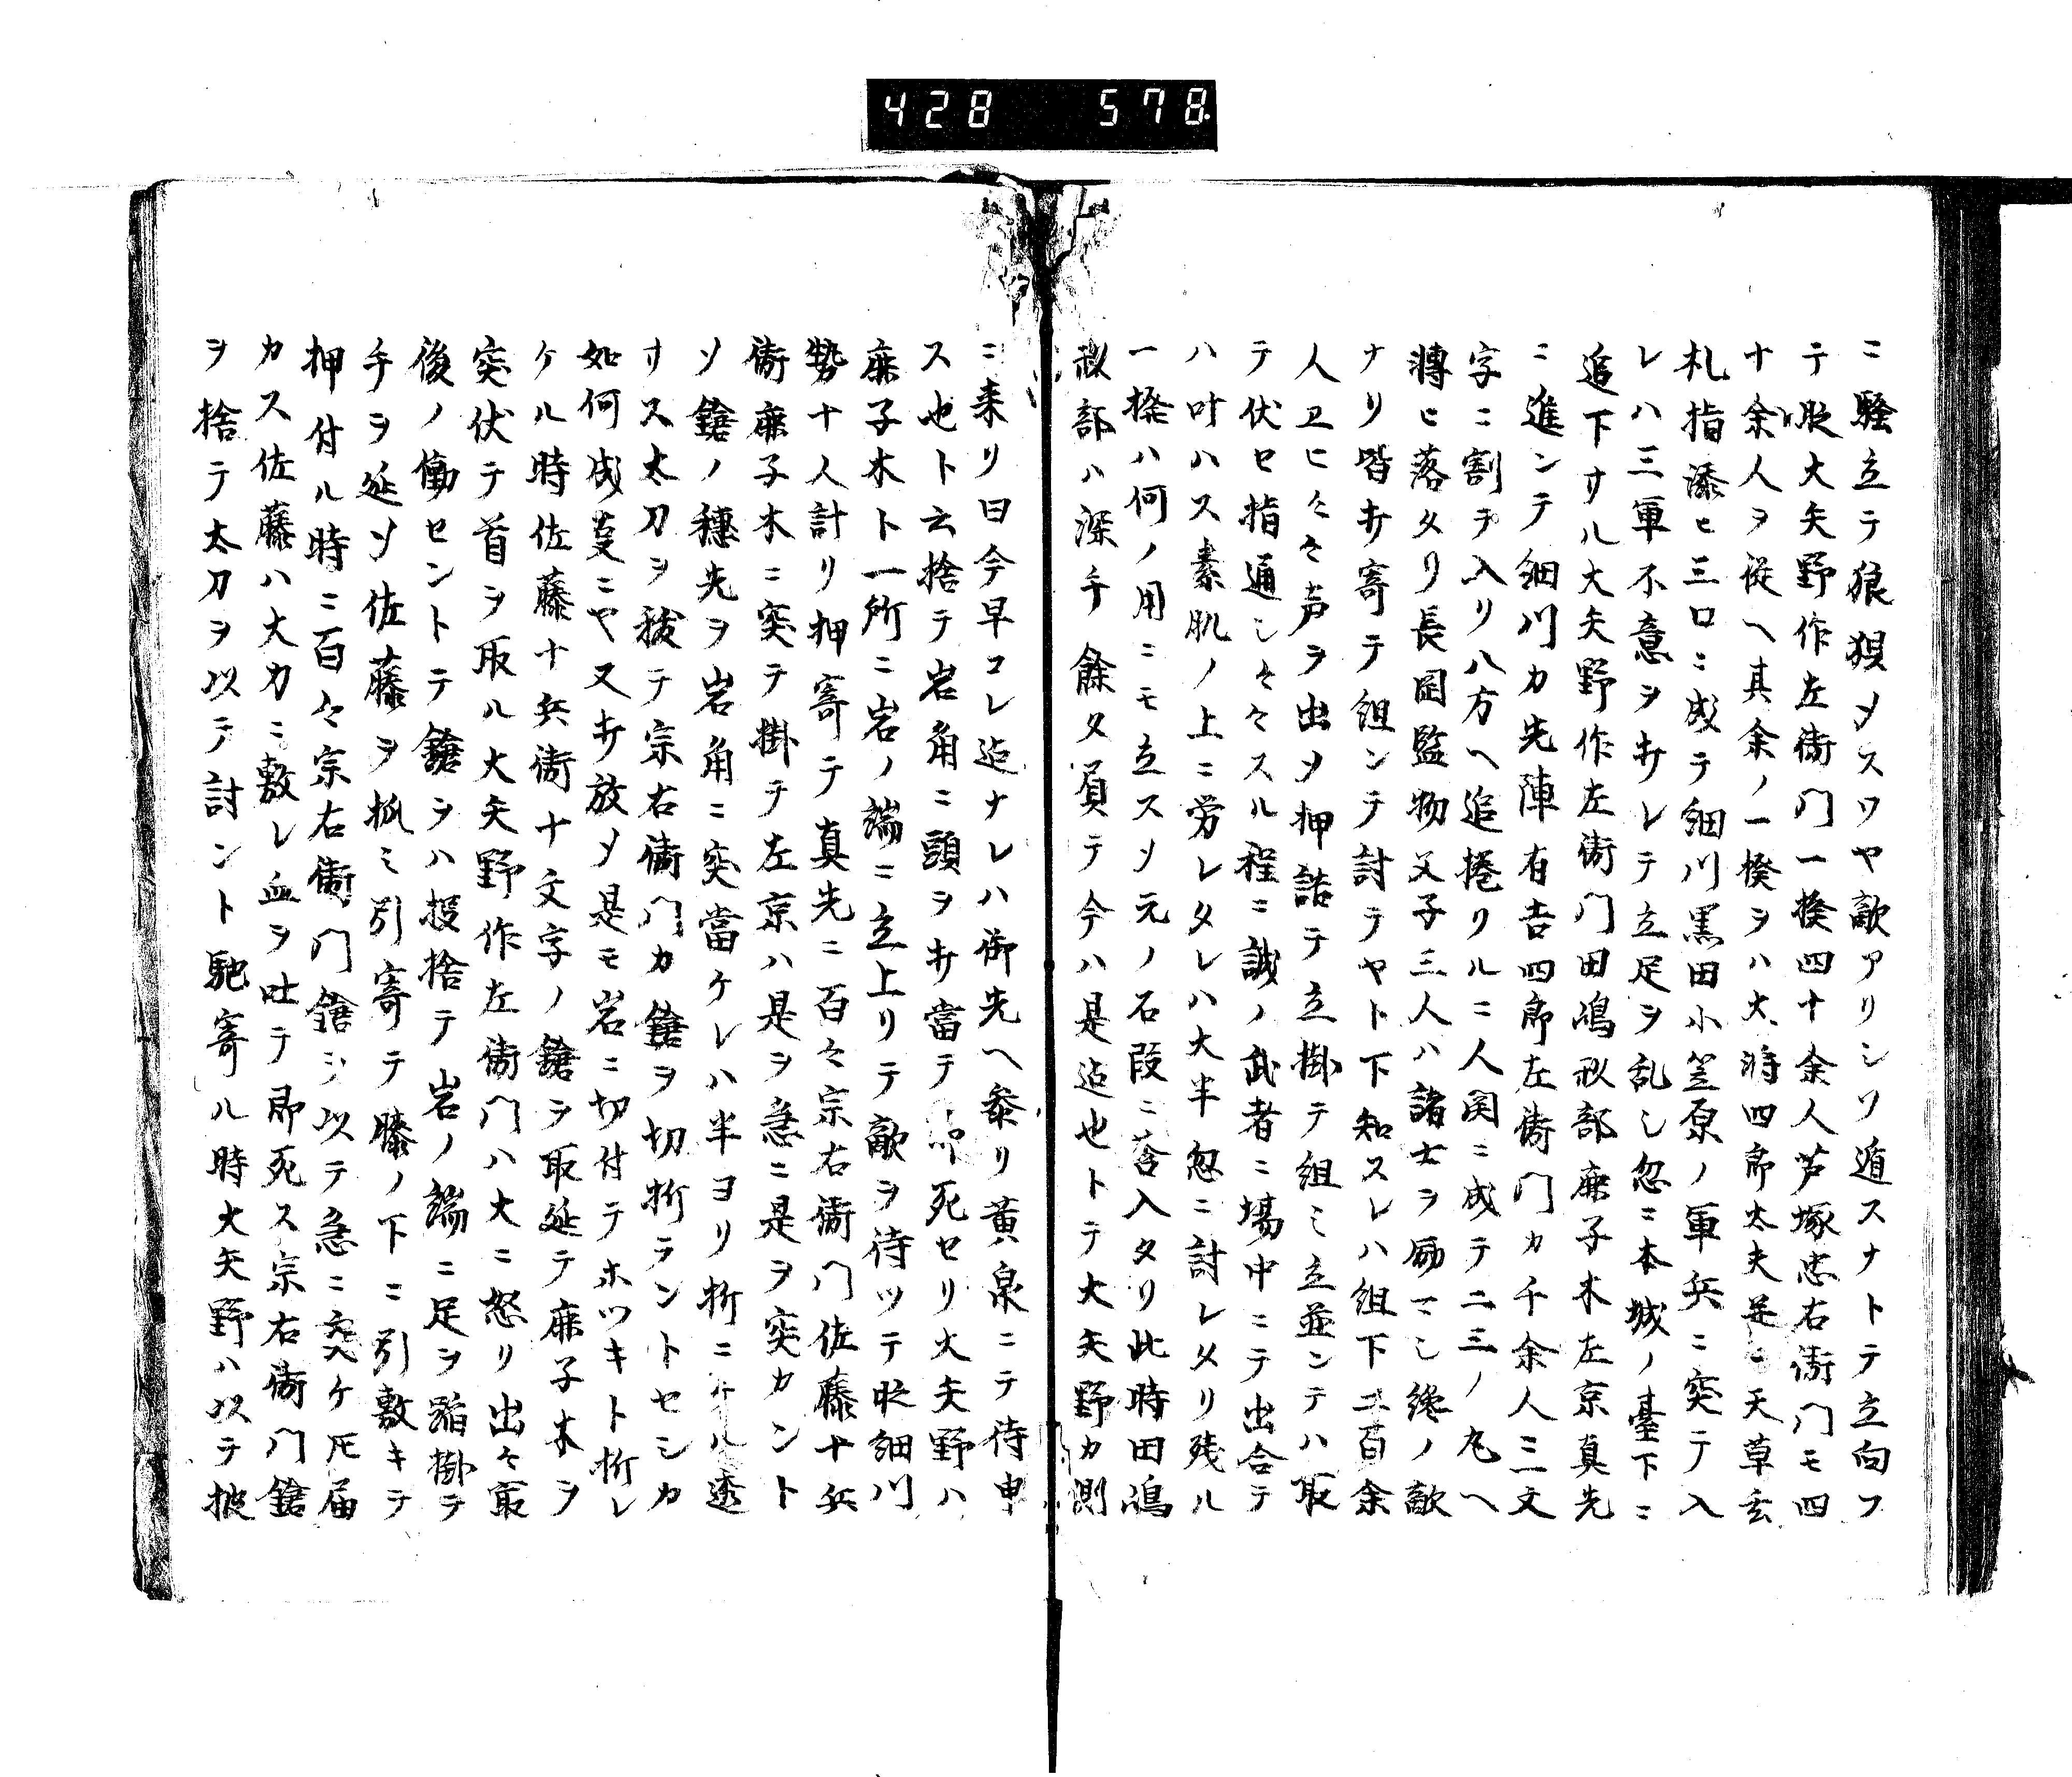 428 578
ニ騒立テ狼狽メスワヤ敵アリシソ遁スナトテ立向フ
テ敗大矢野作左衛門一揆四十余人芦塚忠右衛門モ四
十余人ヲ従ヘ其余ノ一揆ヲハ大将四郎太夫並ニ天草玄
札指添ヒ三口ニ成テ細川黒田小笠原ノ軍兵ニ突テ入
レハ三軍不意ヲ打レテ立足ヲ乱シ忽ニ本城ノ臺下ニ
追下サル大矢野作左衛門田嶋秋部麻子木左京真先
ニ進ンテ細川カ先陣有吉四郎左衛門カ千余人三文
字ニ割テ入リ八方ヘ追捲リルニ人関ニ成テ二三ノ丸ヘ
轉ヒ落タリ長岡監物父子三人ハ諸士ヲ励マシ纔ノ敵
ナリ皆打寄テ組ンテ討テヤト下知スレハ組下二百余
人ヱヒ々々声ヲ出メ押詰テ立掛テ組ミ立並ンテハ取
テ伏セ指通シ々々スル程ニ誠ノ武者ニ場中ニテ出合テ
ハ叶ハス素肌ノ上ニ労レタレハ大半忽ニ討レメリ残ル
一揆ハ何ノ用ニモ立スソ元ノ石段ニ落入タリ此時田嶋
秋部ハ深手餘タ負テ今ハ是迠也トテ大矢野カ側
ニ来リ曰今早コレ迠ナレハ御先ヘ参リ黄泉ニテ待申
ス也ト云捨テ岩角ニ頭ヲ打當テ死セリ大矢野ハ
麻子木ト一所ニ岩ノ端ニ立上リテ敵ヲ待ツテ眨細川
勢十人計リ押寄テ真先ニ百々宗右衛門佐藤十兵
衛麻子木ニ突テ掛テ左京ハ是ヲ急ニ是ヲ突カント
ソ鎗ノ穂先ヲ岩角ニ突當ケレハ半ヨリ折ニケル透
サス太刀ヲ抜テ宗右衛門カ鎗ヲ切折ラントセシカ
如何成茰ニヤ又打放メ是モ岩ニ切付テホツキト折レ
ケル時佐藤十兵衛十文字ノ鎗ヲ取延テ麻子木ヲ
突伏テ首ヲ取ル大矢野作左衛門ハ大ニ怒リ出々最
後ノ働セントテ鎗ヲハ投捨テ岩ノ端ニ足ヲ踏掛テ
手ヲ延ソ佐藤ヲ抓ミ引寄テ膝ノ下ニ引敷キテ
押付ル時ニ百々宗右衛門鎗ヲ以テ急ニ突ケ𪜈届
カス佐藤ハ大力ニ敷レ血ヲ吐テ即死ス宗右衛門鎗
ヲ捨テ太刀ヲ以テ討ント馳寄ル時大矢野ハ以テ披